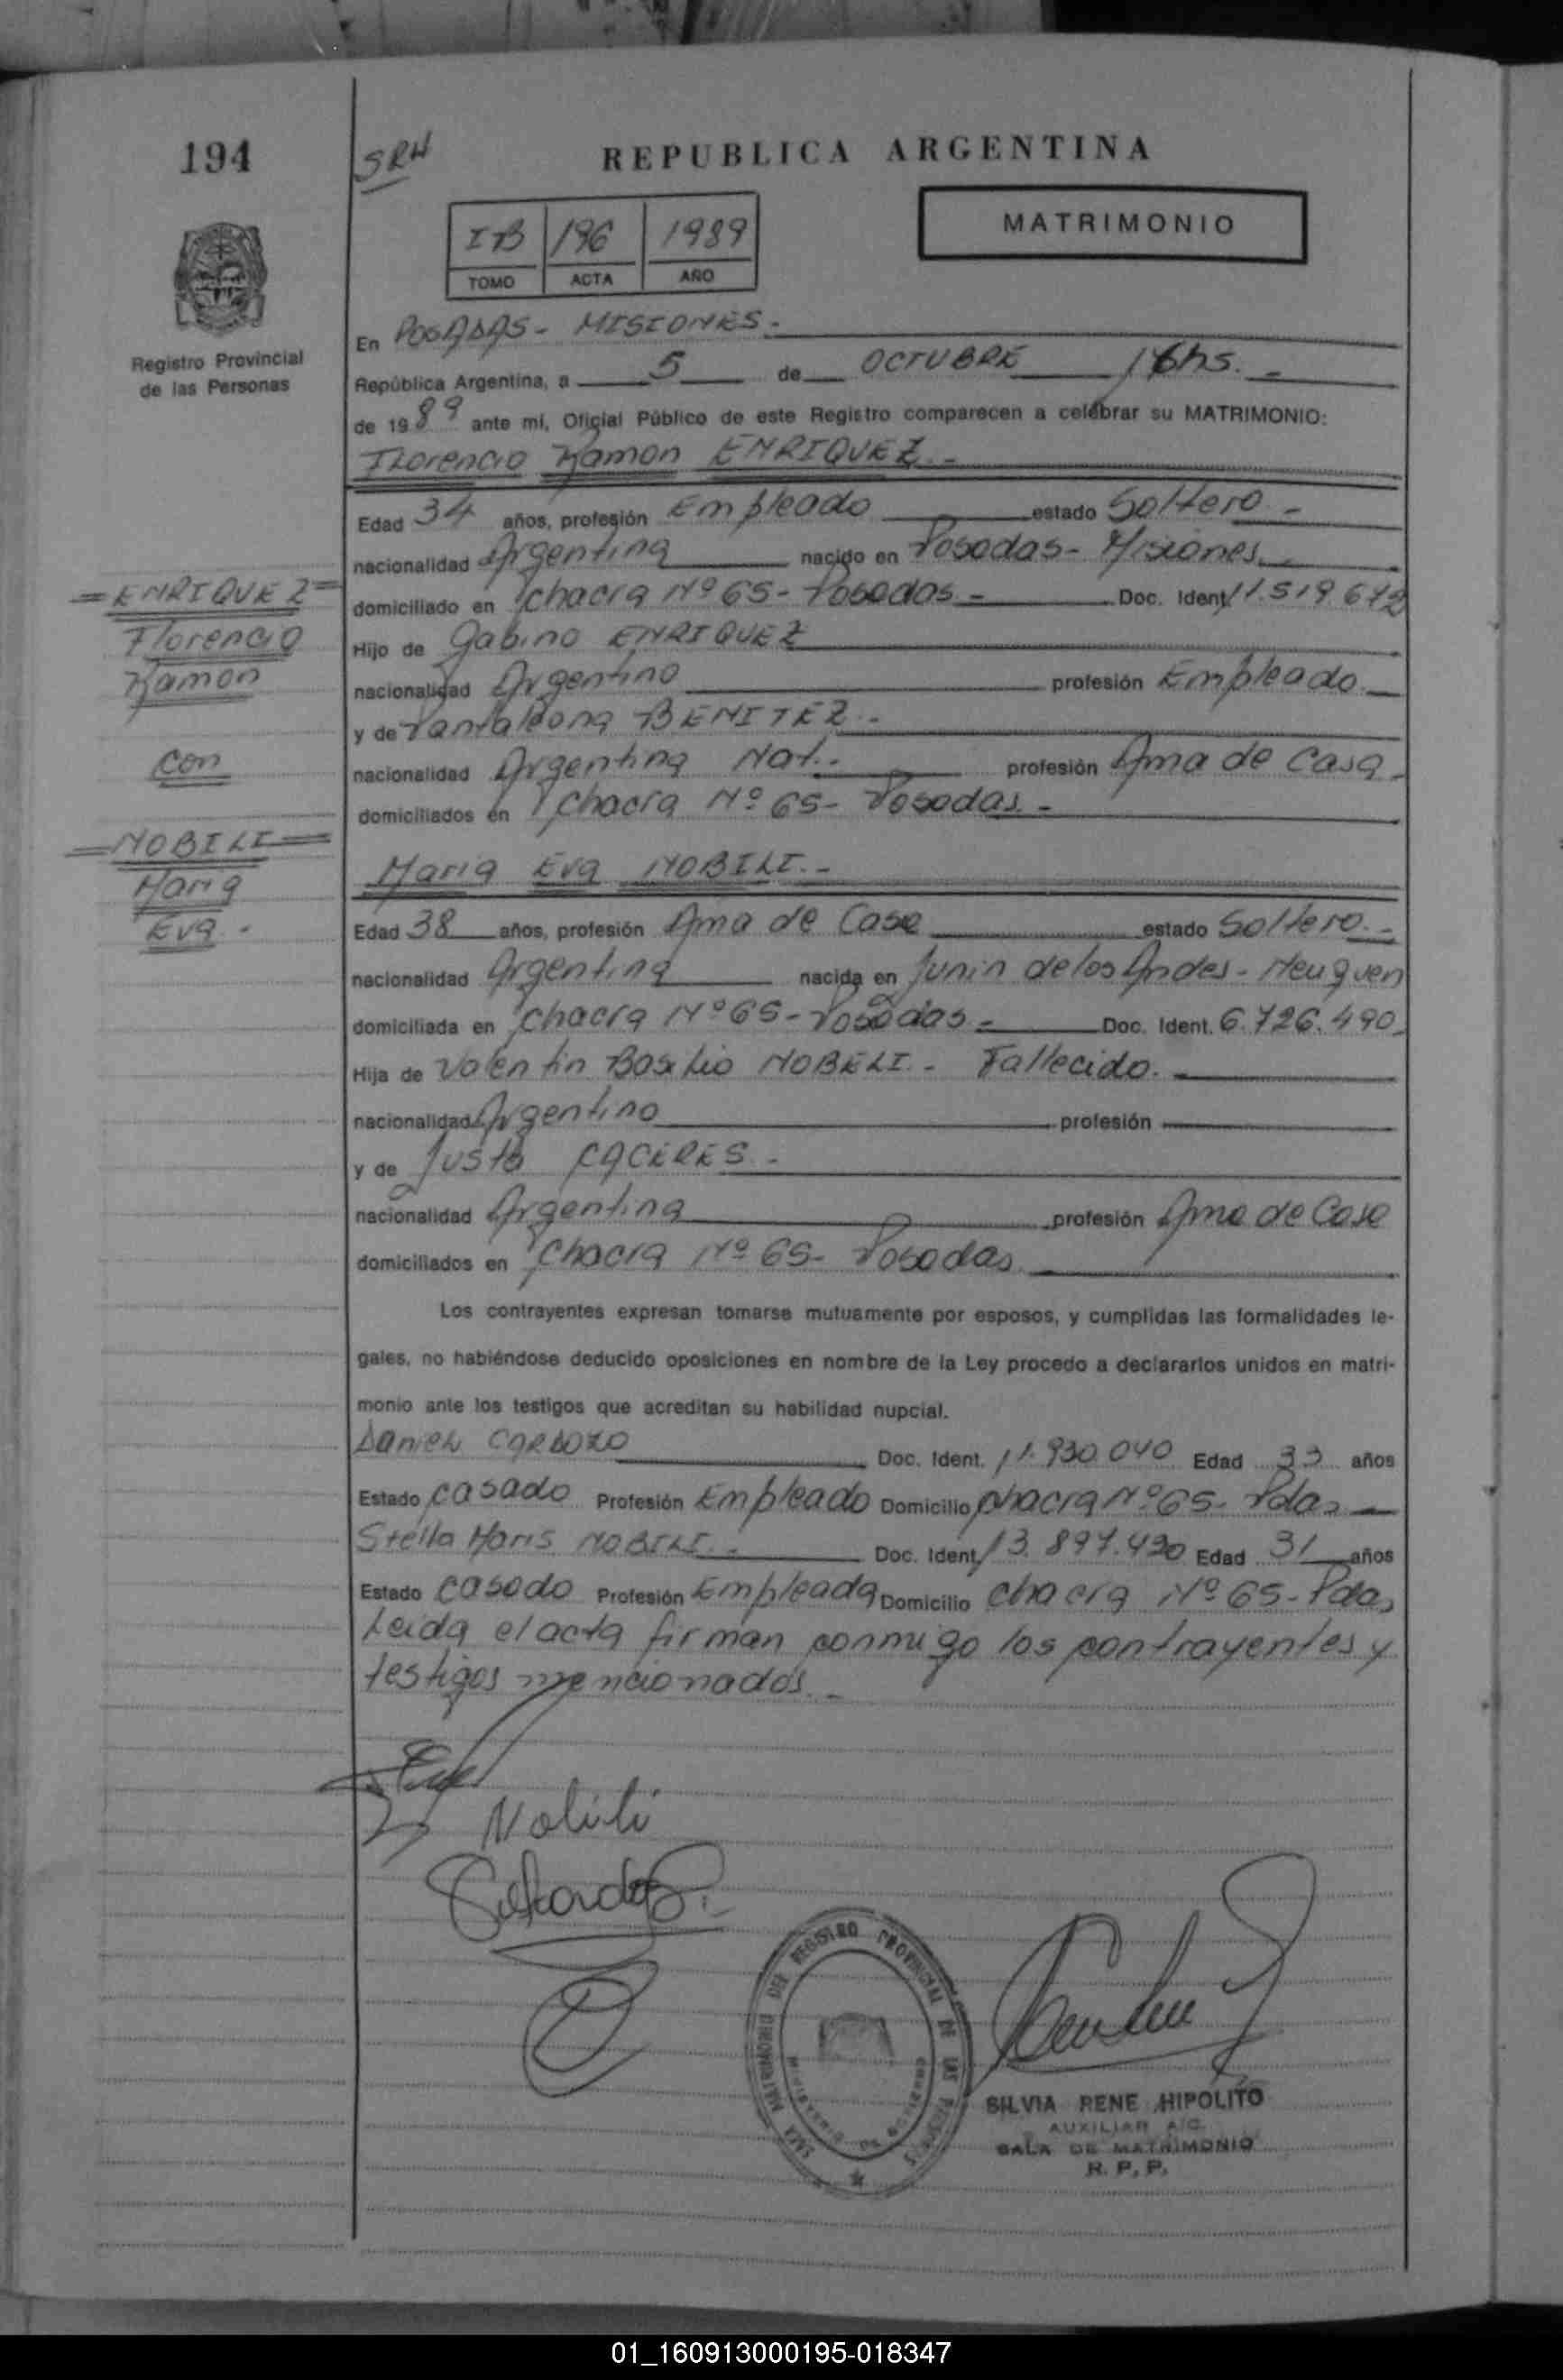 194
SRH
REPUBLICA ARGENTINA
I B 196 1989
TOMO ACTA AÑO
MATRIMONIO
Registro Provincial
de las Personas
En POSADAS - MISIONES.-
República Argentina, a 5 de OCTUBRE 16hs.-
de 1989 ante mí, Oficial Público de este Registro comparecen a celebrar su MATRIMONIO:
Florencio Ramon ENRIQUEZ.-
Edad 34 años, profesión Empleado estado Soltero.-
nacionalidad Argentina nacido en Posadas - Misiones.-
domiciliado en Chacra Nº 65 - Posadas.- Doc. Ident. 11.519.672
Hijo de Gabino ENRIQUEZ
nacionalidad Argentino profesión Empleado.-
y de Pantaleona BENITEZ.-
nacionalidad Argentina Nat.. profesión Ama de Casa.-
domiciliados en Chacra Nº 65 - Posadas.-
=ENRIQUEZ=
Florencio
Ramon
con
=NOBILI=
Maria
Eva.-
Maria Eva NOBILI.-
Edad 38 años, profesión Ama de Casa estado Soltero.-
nacionalidad Argentina nacida en Junin de los Andes - Neuquen
domiciliada en Chacra Nº 65 - Posadas.- Doc. Ident. 6.726.490.
Hija de Valentin Basilio NOBELI.- Fallecido.-
nacionalidad Argentino profesión
y de Justa CACERES.-
nacionalidad Argentina profesión Ama de Casa
domiciliados en Chacra Nº 65 - Posadas
Los contrayentes expresan tomarse mutuamente por esposos, y cumplidas las formalidades le-
gales, no habiéndose deducido oposiciones en nombre de la Ley procedo a declararlos unidos en matri-
monio ante los testigos que acreditan su habilidad nupcial.
Daniel CARDOZO Doc. Ident. 11.930.040 Edad 33 años
Estado casado Profesión Empleado Domicilio chacra Nº 65 - Pdas
Stella Maris NOBILI.- Doc. Ident. 13.897.490 Edad 31 años
Estado casado Profesión Empleada Domicilio Chacra Nº 65 - Pdas
Leida el acta firman conmigo los contrayentes y
testigos mencionados.-
Nobili
REGISTRO PROVINCIAL DE LAS
SILVIA RENE HIPOLITO
AUXILIAR A/C.
SALA DE MATRIMONIO
R. P. P.
01_160913000195-018347